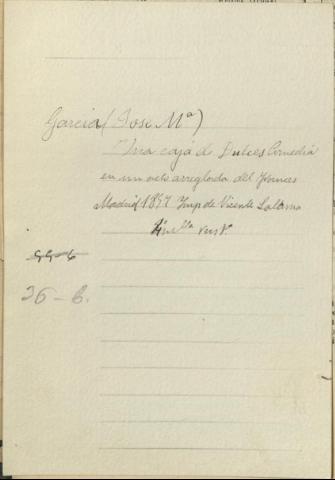 Garcia (Jose Mª)
Una caja de Dulces Comedia
en un acto arreglada del frances
Madrid 1857 Imp de Vicente Lalama
36-6.